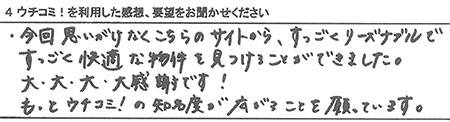 4 ウチコミ！を利用した感想、要望をお聞かせください
・今回思いがけなくこちらのサイトから、すっごくリーズナブルで
すっごく快適な物件を見つけることができました。
大・大・大・大感謝です！
もっとウチコミ！の知名度が広がることを願っています。